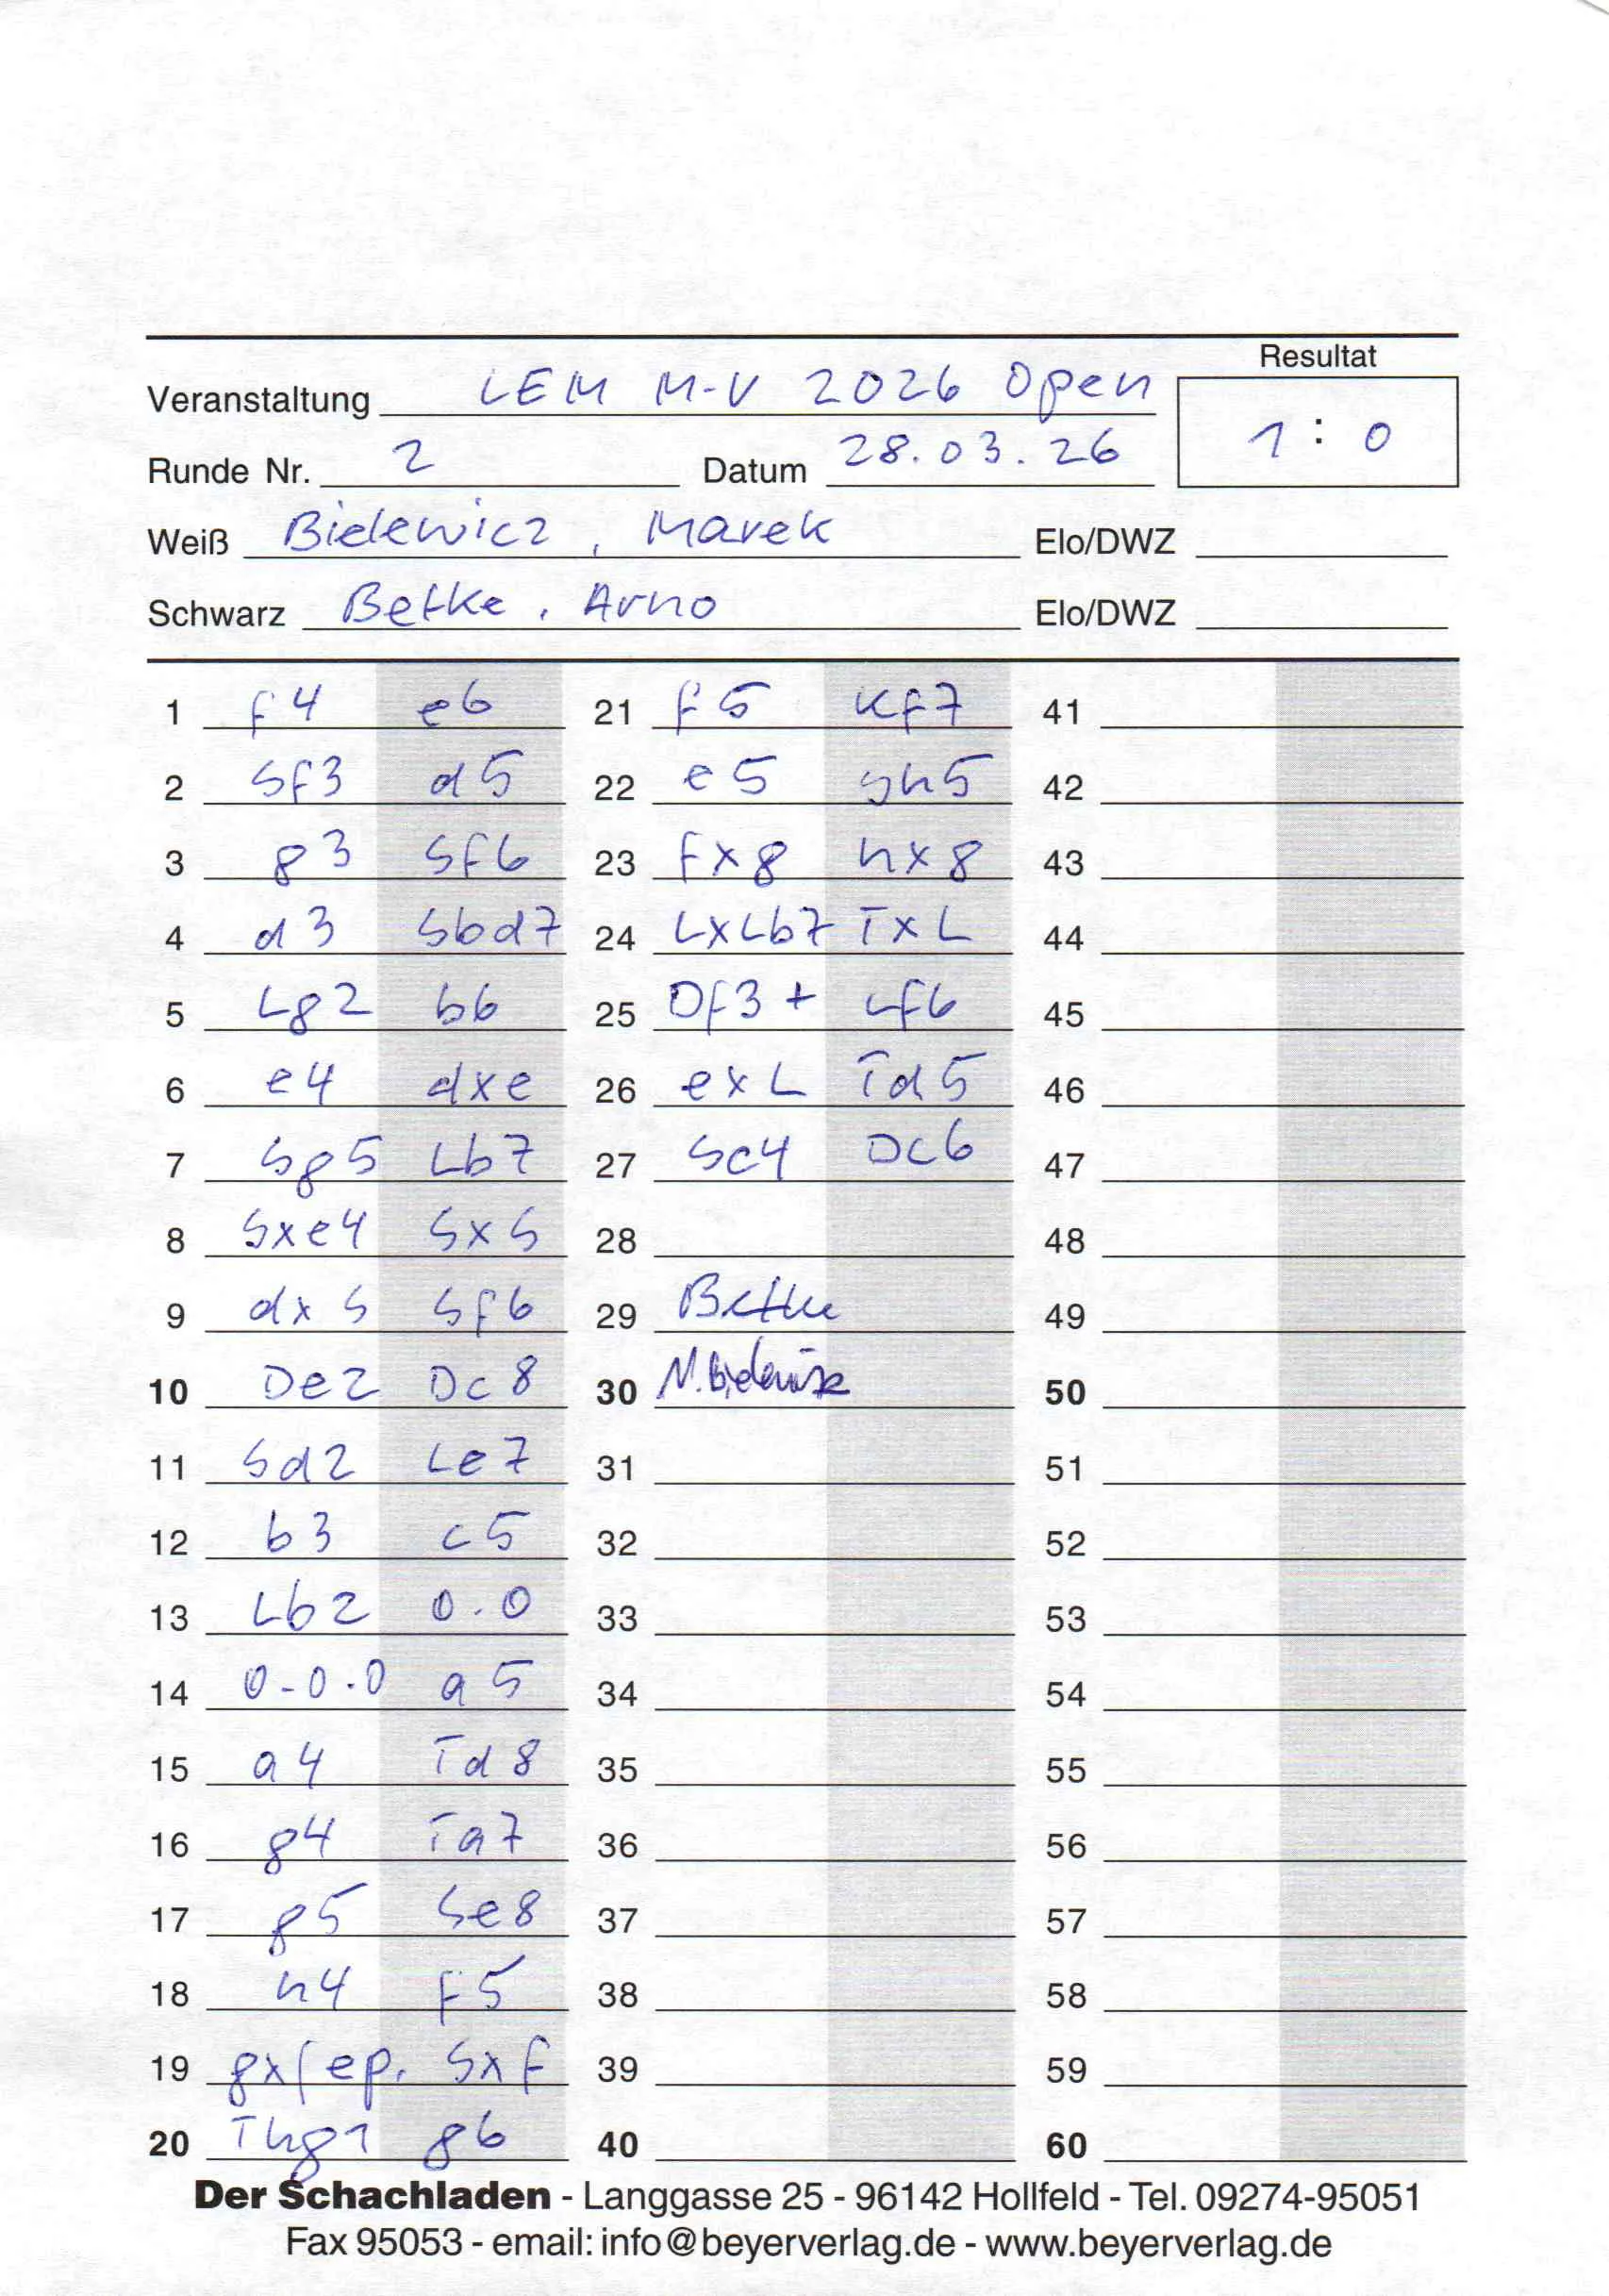 Resultat
Veranstaltung LEM M-V 2026 Open
1 : 0
Runde Nr. 2 Datum 28.03.26
Weiß Bielewicz, Marek Elo/DWZ
Schwarz Betke, Arno Elo/DWZ
1 f4 e6 21 f5 Kf7 41
2 Sf3 d5 22 e5 Sh5 42
3 g3 Sf6 23 fxg hxg 43
4 d3 Sbd7 24 LxLb7 TxL 44
5 Lg2 b6 25 Df3+ Lf6 45
6 e4 dxe 26 exL Td5 46
7 Sg5 Lb7 27 Sc4 Dc6 47
8 Sxe4 SxS 28 48
9 dxS Sf6 29 Betke 49
10 De2 Dc8 30 M. Bielewicz 50
11 Sd2 Le7 31 51
12 b3 c5 32 52
13 Lb2 0.0 33 53
14 0-0.0 a5 34 54
15 a4 Td8 35 55
16 g4 Ta7 36 56
17 g5 Se8 37 57
18 h4 f5 38 58
19 gxf ep. Sxf 39 59
20 Thg1 g6 40 60
Der Schachladen - Langgasse 25 - 96142 Hollfeld - Tel. 09274-95051
Fax 95053 - email: info@beyerverlag.de - www.beyerverlag.de